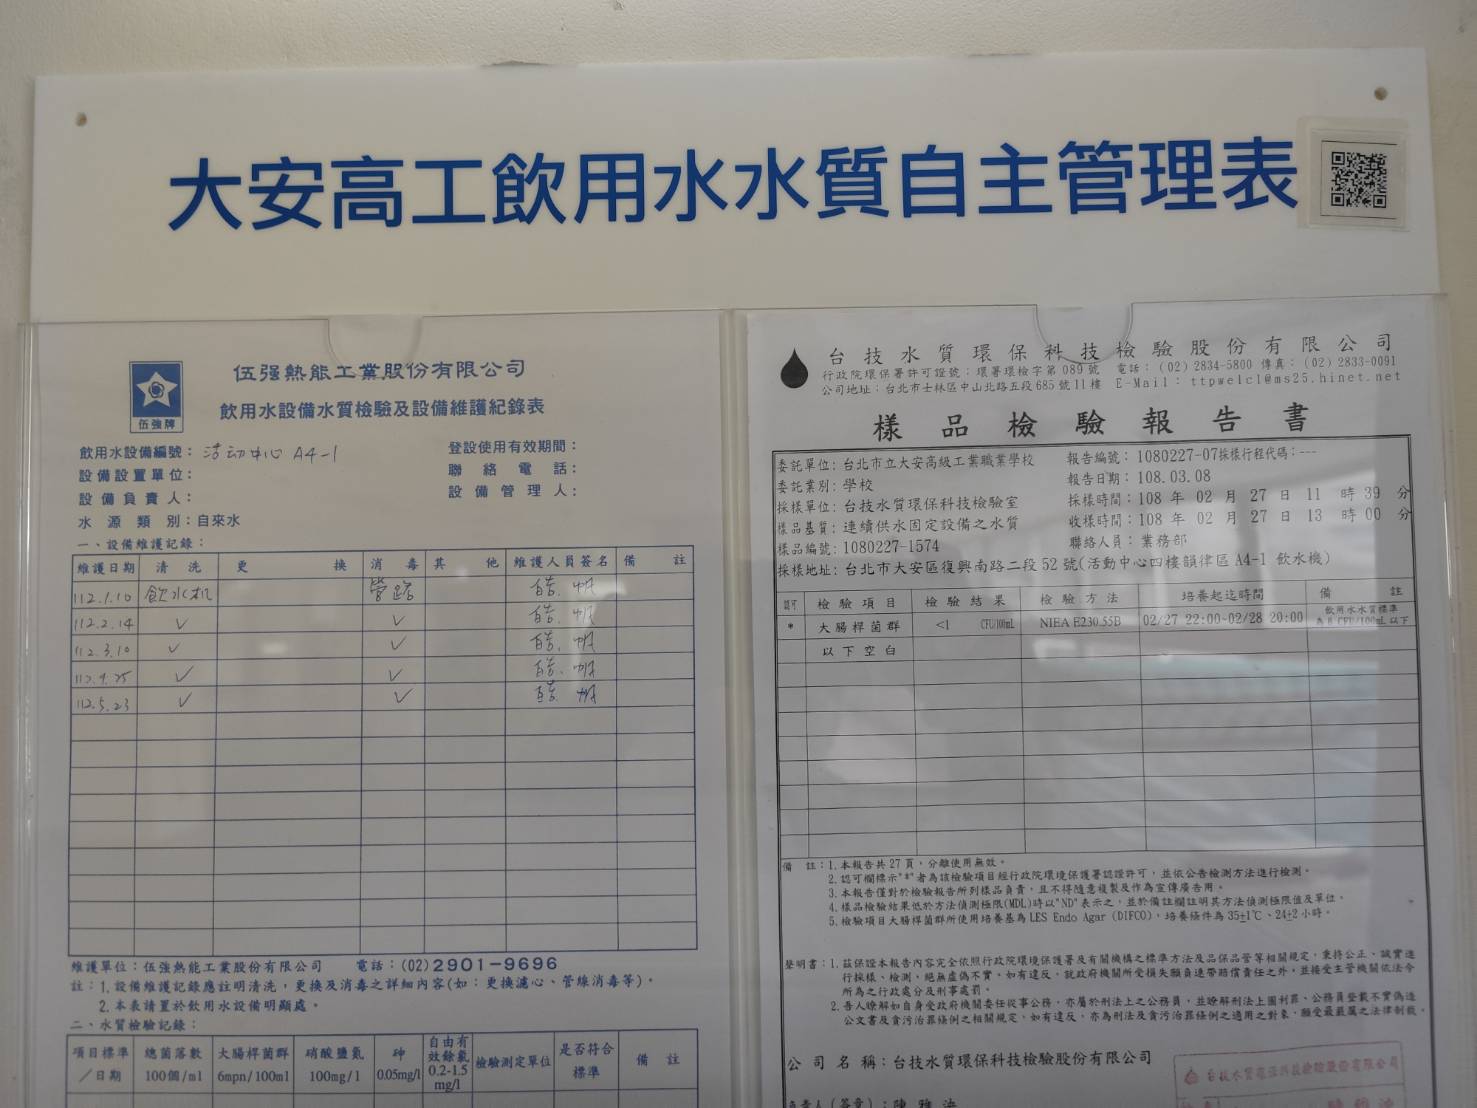 大安高工飲用水水質自主管理表
伍強牌
伍强熱能工業股份有限公司
飲用水設備水質檢驗及設備維護紀錄表
飲用水設備編號：活动中心 A4-1
登設使用有效期間：
設備設置單位：
聯絡電話：
設備負責人：
設備管理人：
水源類別：自來水
一、設備維護記錄：
維護日期 清洗 更換 消毒 其他 維護人員簽名 備註
112.1.10 飲水机 管路
112.2.14 ✓ ✓
112.3.10 ✓ ✓
112.4.25 ✓ ✓
112.5.23 ✓ ✓
維護單位：伍強熱能工業股份有限公司 電話：(02)2901-9696
註：1.設備維護記錄應註明清洗，更換及消毒之詳細內容(如：更換濾心、管線消毒等)。
2.本表請置於飲用水設備明顯處。
二、水質檢驗記錄：
項目標準／日期 總菌落數 100個/ml 大腸桿菌群 6mpn/100ml 硝酸鹽氮 100mg/l 砷 0.05mg/l 自由有效餘氯 0.2-1.5 mg/l 檢驗測定單位 是否符合標準 備註
台技水質環保科技檢驗股份有限公司
行政院環保署許可證號：環署環檢字第089號 電話：(02)2834-5800 傳真：(02)2833-0091
公司地址：台北市士林區中山北路五段685號11樓 E-Mail：ttpwelcl@ms25.hinet.net
樣品檢驗報告書
委託單位：台北市立大安高級工業職業學校
報告編號：1080227-07採樣行程代碼：---
委託業別：學校
報告日期：108.03.08
採樣單位：台技水質環保科技檢驗室
採樣時間：108 年 02 月 27 日 11 時 39 分
樣品基質：連續供水固定設備之水質
收樣時間：108 年 02 月 27 日 13 時 00 分
樣品編號：1080227-1574
聯絡人員：業務部
採樣地址：台北市大安區復興南路二段52號(活動中心四樓韻律區A4-1 飲水機)
認可 檢驗項目 檢驗結果 檢驗方法 培養起迄時間 備註
* 大腸桿菌群 <1 CFU/100mL NIEA E230.55B 02/27 22:00~02/28 20:00 飲用水水質標準為6 CFU/100mL以下
以下空白
備註：1.本報告共27頁，分離使用無效。
2.認可欄標示"*"者為該檢驗項目經行政院環境保護署認證許可，並依公告檢測方法進行檢測。
3.本報告僅對於檢驗報告所列樣品負責，且不得隨意複製及作為宣傳廣告用。
4.樣品檢驗結果低於方法偵測極限(MDL)時以"ND"表示之，並於備註欄註明其方法偵測極限值及單位。
5.檢驗項目大腸桿菌群所使用培養基為LES Endo Agar (DIFCO)，培養條件為35±1℃、24±2小時。
聲明書：1.茲保證本報告內容完全依照行政院環境保護署及有關機構之標準方法及品保品管等相關規定，秉持公正、誠實進
行採樣、檢測。絕無虛偽不實，如有違反，就政府機關所受損失願負連帶賠償責任之外，並接受主管機關依法令
所為之行政處分及刑事處罰。
2.吾人瞭解如自身受政府機關委任從事公務，亦屬於刑法上之公務員，並瞭解刑法上圖利罪、公務員登載不實偽造
公文書及貪污治罪條例之相關規定，如有違反，亦為刑法及貪污治罪條例之適用之對象，願受最嚴厲之法律制裁。
公司名稱：台技水質環保科技檢驗股份有限公司
台技水質環保科技檢驗股份有限公司
負責人(簽章)：陳雅